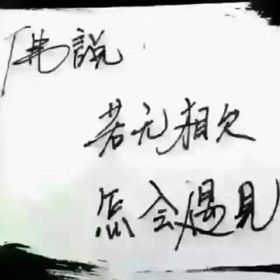 「佛説
若无相欠
怎会遇見